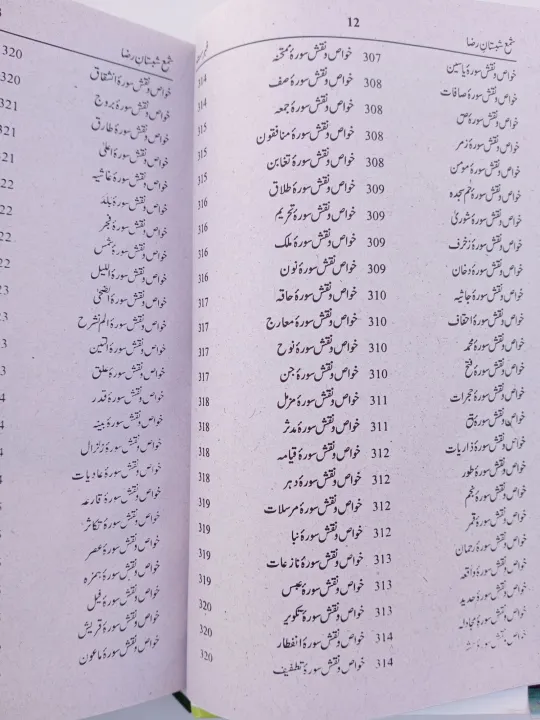 12
شمع شبستانِ رضا
خواص و نقش سورۂ یاسین 307 خواص و نقش سورۂ ممتحنہ 314
خواص و نقش سورۂ صافات 308 خواص و نقش سورۂ صف 314
خواص و نقش سورۂ ص 308 خواص و نقش سورۂ جمعہ 315
خواص و نقش سورۂ زمر 308 خواص و نقش سورۂ منافقون 315
خواص و نقش سورۂ مومن 308 خواص و نقش سورۂ تغابن 315
خواص و نقش سورۂ حم سجدہ 309 خواص و نقش سورۂ طلاق 316
خواص و نقش سورۂ شوریٰ 309 خواص و نقش سورۂ تحریم 316
خواص و نقش سورۂ زخرف 309 خواص و نقش سورۂ ملک 316
خواص و نقش سورۂ دخان 309 خواص و نقش سورۂ نون 316
خواص و نقش سورۂ جاثیہ 310 خواص و نقش سورۂ حاقہ 317
خواص و نقش سورۂ احقاف 310 خواص و نقش سورۂ معارج 317
خواص و نقش سورۂ محمد 310 خواص و نقش سورۂ نوح 317
خواص و نقش سورۂ فتح 310 خواص و نقش سورۂ جن 317
خواص و نقش سورۂ حجرات 311 خواص و نقش سورۂ مزمل 318
خواص و نقش سورۂ ق 311 خواص و نقش سورۂ مدثر 318
خواص و نقش سورۂ ذاریات 312 خواص و نقش سورۂ قیامہ 318
خواص و نقش سورۂ طور 312 خواص و نقش سورۂ دہر 318
خواص و نقش سورۂ نجم 312 خواص و نقش سورۂ مرسلات 319
خواص و نقش سورۂ قمر 312 خواص و نقش سورۂ نبا 319
خواص و نقش سورۂ رحمان 313 خواص و نقش سورۂ نازعات 319
خواص و نقش سورۂ واقعہ 313 خواص و نقش سورۂ عبس 319
خواص و نقش سورۂ حدید 313 خواص و نقش سورۂ تکویر 320
خواص و نقش سورۂ مجادلہ 314 خواص و نقش سورۂ انفطار 320
خواص و نقش سورۂ 314 خواص و نقش سورۂ تطفیف 320
شمع شبستانِ رضا
خواص و نقش سورۂ انشقاق 320
خواص و نقش سورۂ بروج 320
خواص و نقش سورۂ طارق 321
خواص و نقش سورۂ اعلیٰ 321
خواص و نقش سورۂ غاشیہ 21
خواص و نقش سورۂ بلد 22
خواص و نقش سورۂ فجر 22
خواص و نقش سورۂ شمس 22
خواص و نقش سورۂ اللیل 22
خواص و نقش سورۂ الضحیٰ 23
خواص و نقش سورۂ الم نشرح 3
خواص و نقش سورۂ التین 3
خواص و نقش سورۂ علق 3
خواص و نقش سورۂ قدر 4
خواص و نقش سورۂ بینہ 4
خواص و نقش سورۂ زلزال
خواص و نقش سورۂ عادیات
خواص و نقش سورۂ قارعہ
خواص و نقش سورۂ تکاثر
خواص و نقش سورۂ عصر
خواص و نقش سورۂ ہمزہ
خواص و نقش سورۂ فیل
خواص و نقش سورۂ قریش
خواص و نقش سورۂ ماعون